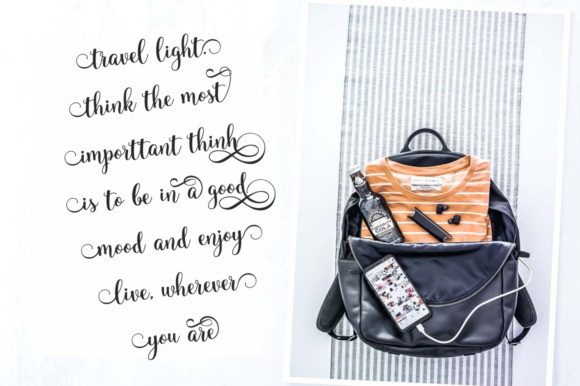 travel light.
think the most
importtant think
is to be in a good
mood and enjoy
live, wherever
you are
ZARA
COLA